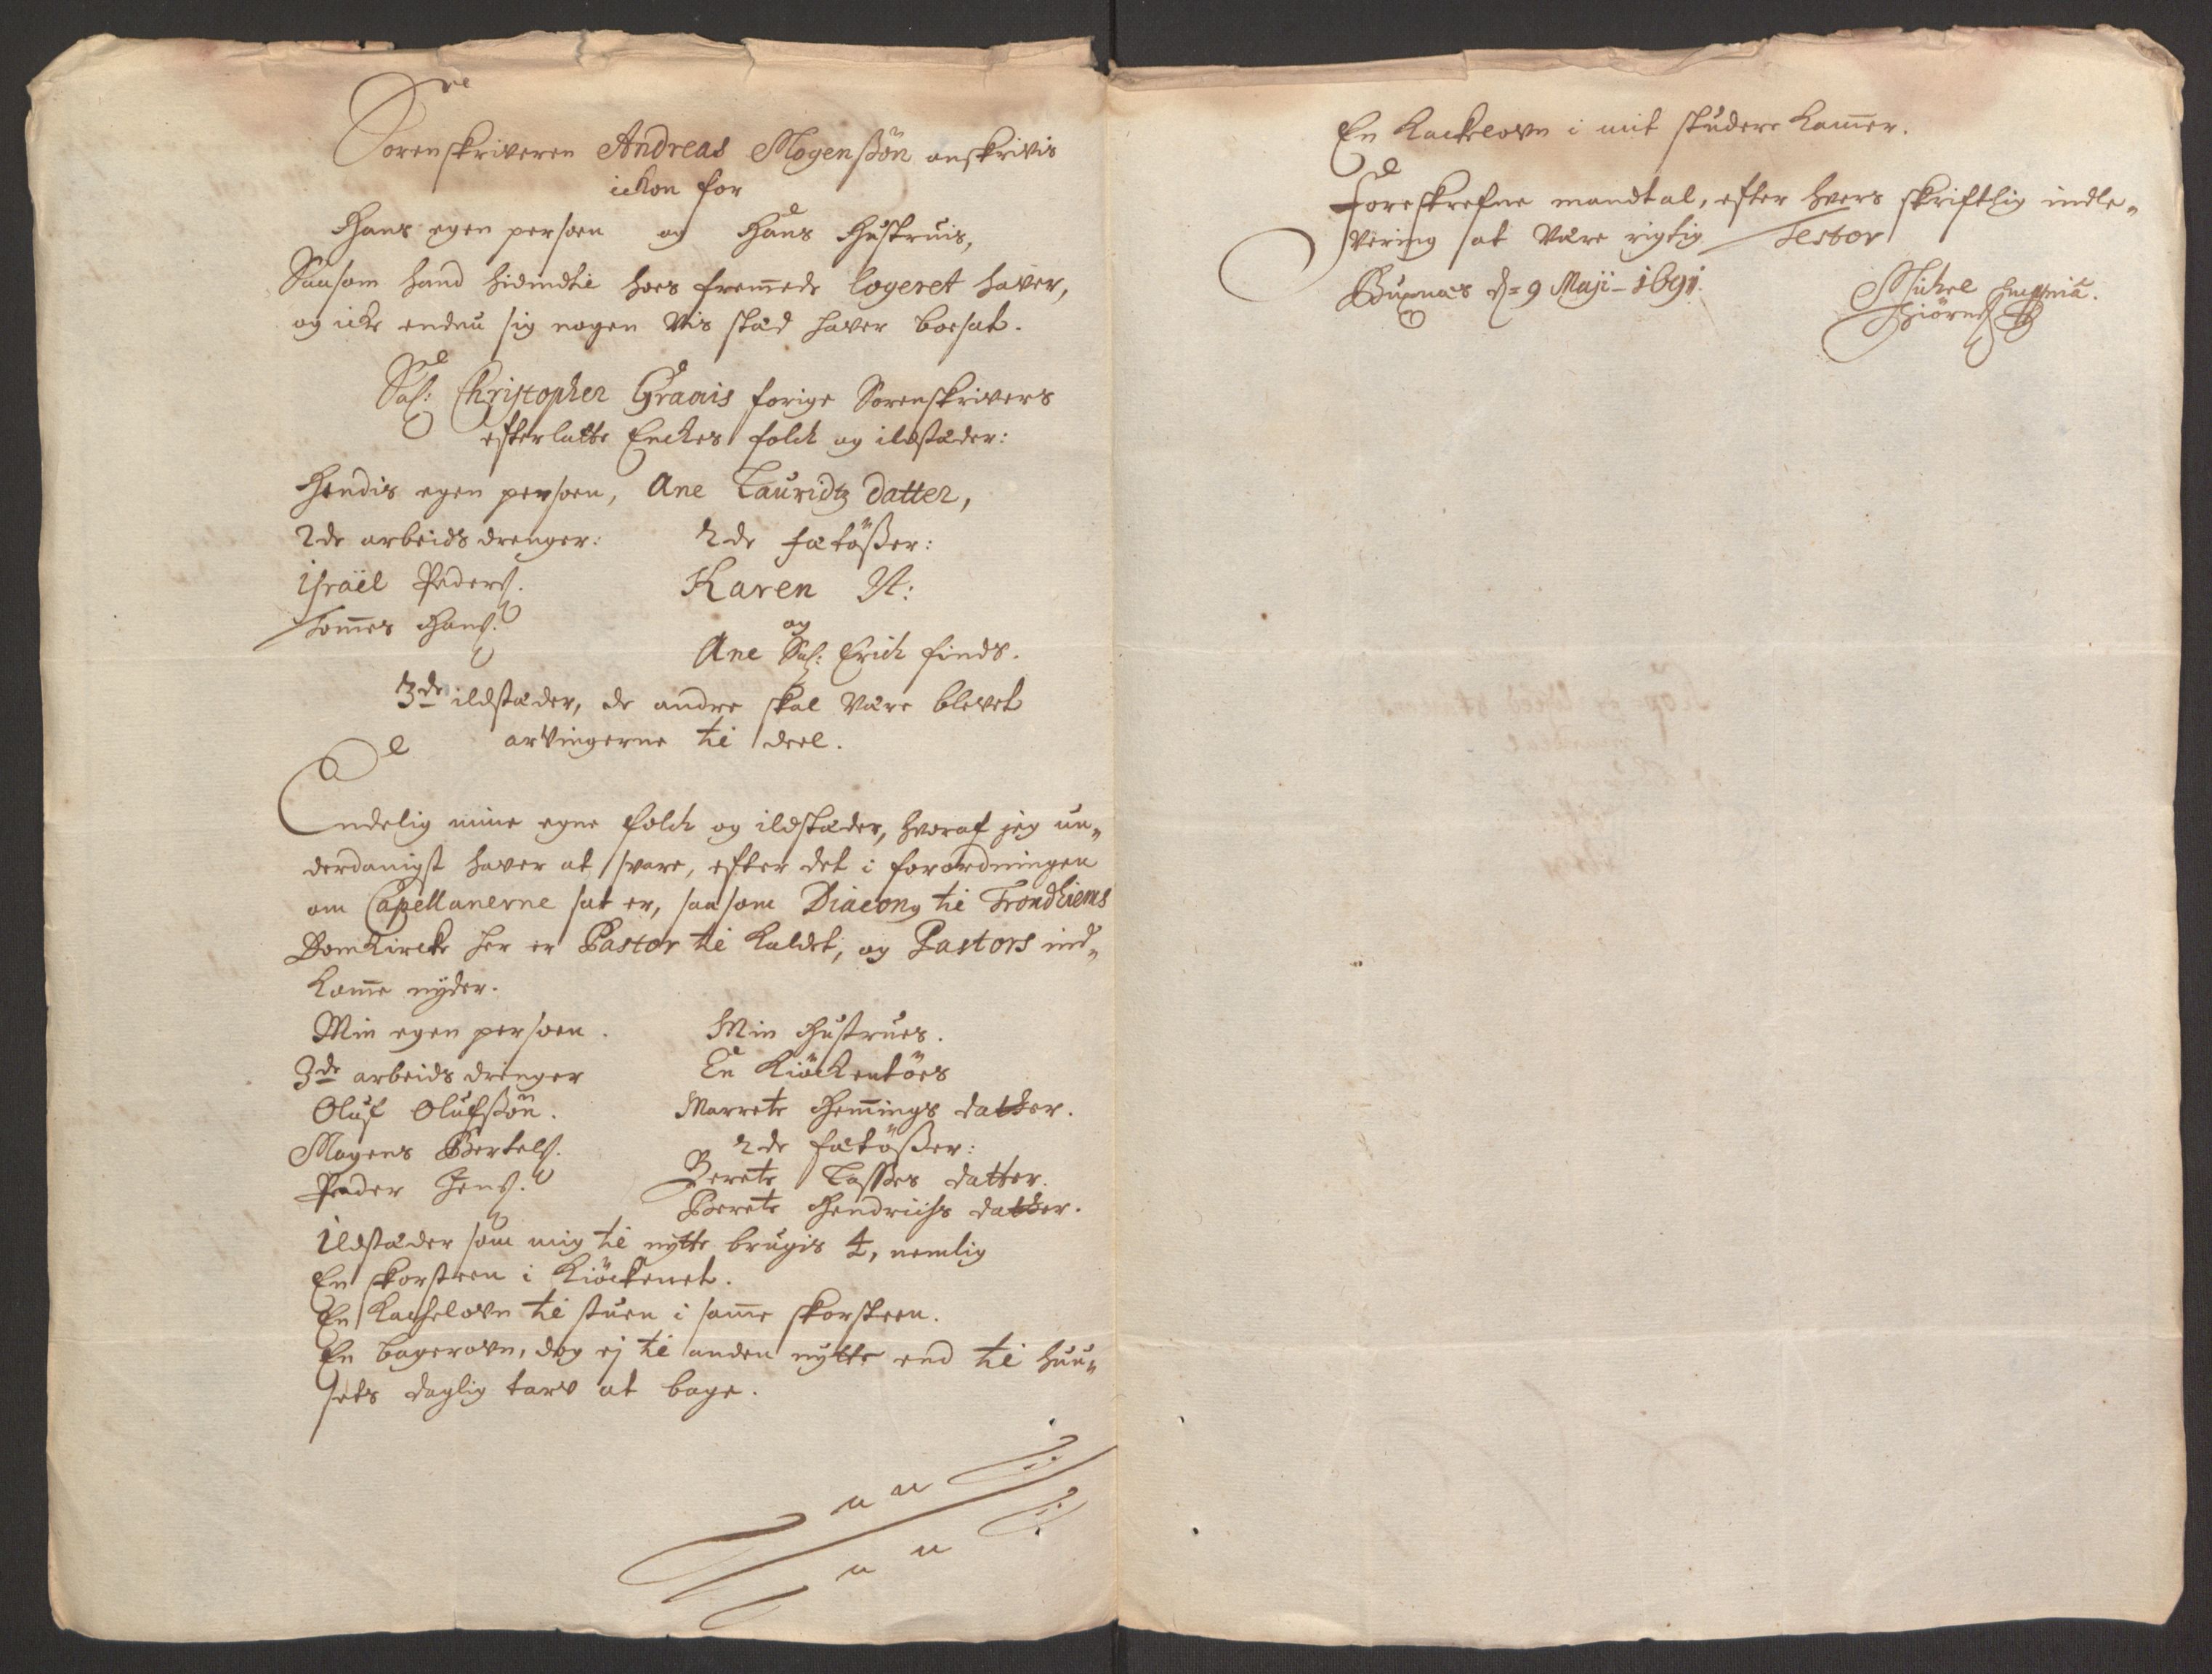 Sorenskriveren Andreas Mogenßön anskrivis
ickon for
Hans egen persoen og Hans Hustruis,
Saasom hand hidindtil hoes fremmede logeret haver,
og icke endnu sig nogen vis stæd haver boesat.
Sal: Christopher Graais forige Sorenskrivers
efterlatte Enckes folch og ildstæder:
Hendis egen persoen, Ane Lauridtz datter,
2de arbeids drenger: 2de fætößer:
Israël Peders. Karen N:
Tommes Hans. og
Ane Sal: Erich Finds.
3de ildstæder, de andre skal være blevet
arvingerne til deel.
Endelig mine egne folch og ildstæder, hvoraf jeg un„
derdanigst haver at svare, efter det i forordningen
om Capellanerne sat er, saasom Diacong til Trondhiems
Domkircke her er Pastor til kaldet, og Pastors ind„
komme nyder.
Min egen persoen. Min Hustrues.
3de arbeids drenger En Kiöckentöes
Oluf Olufßön. Marrete Hemmings datter.
Mogens Bertels. 2de fætößer:
Peder Jens. Berete Laßes datter.
Berete Hendrichs datter.
Ildstæder som mig til nytte brugis 4, nemlig
En skorsteen i Kiöckenet.
En Kachelovn til stuen i samme skorsteen.
En bagerovn, dog ej til anden nytte end til huu„
sets daglig tarv at bage.
En Kackelovn i mit studere kammer.
Foreskrefne mandtal, efter hvers skriftlig indle„
vering sat være rigtig Testor
Buxnæs d= 9 Maji– 1691.
Michel
Hiörn